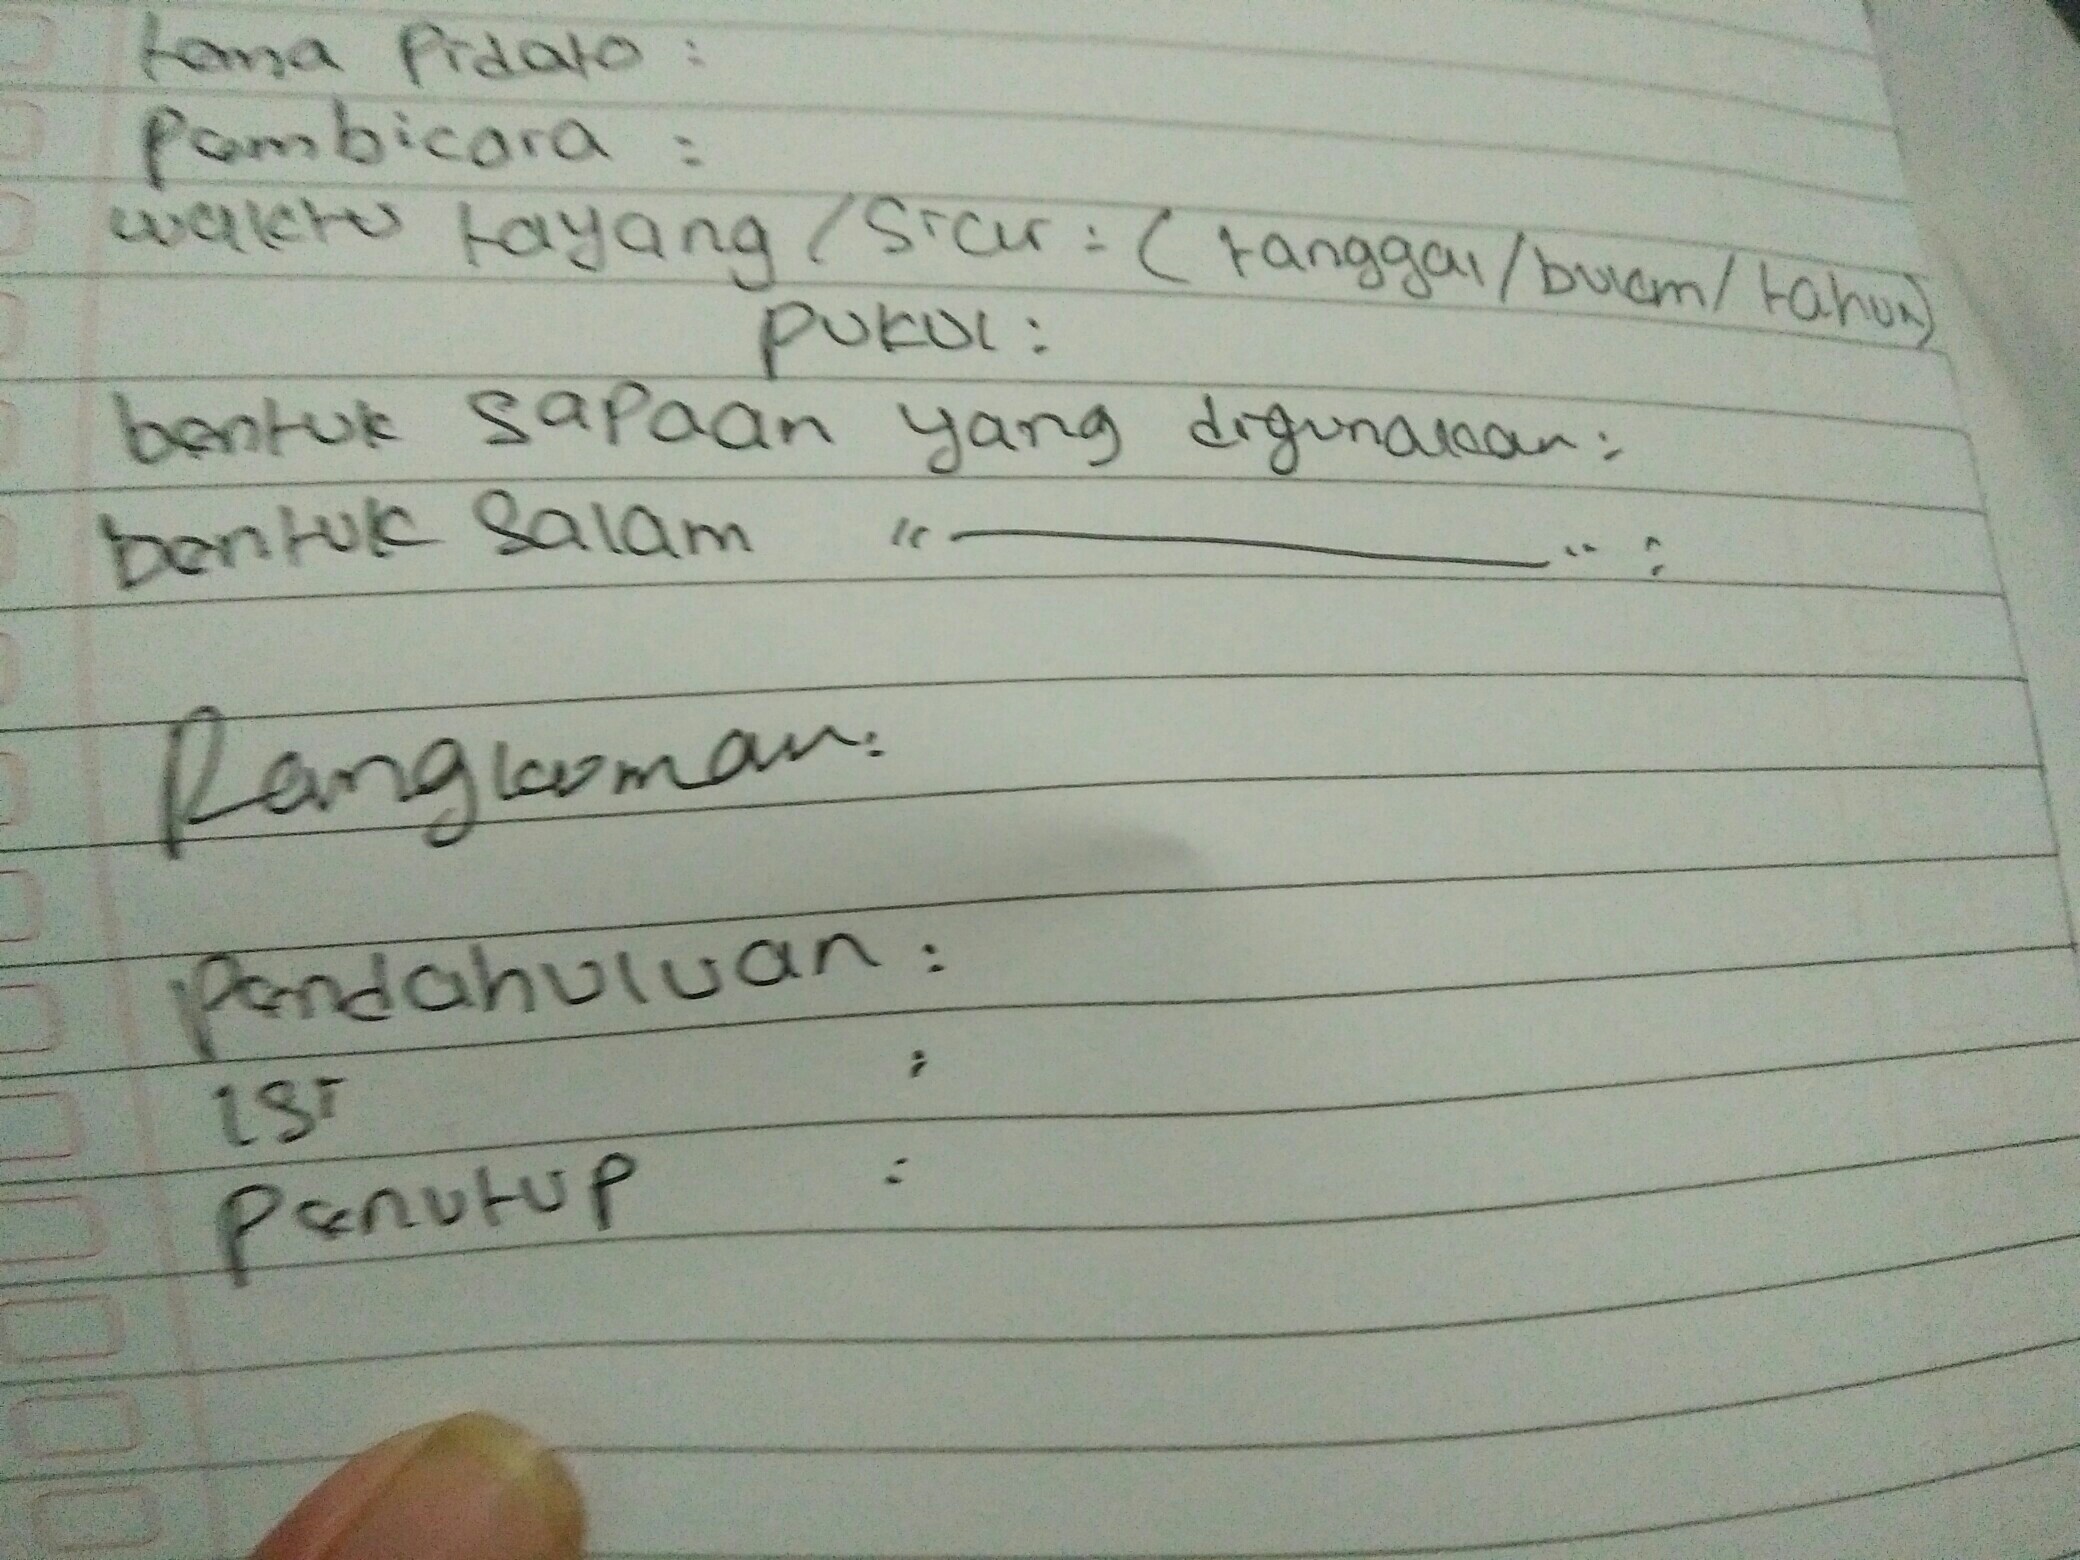 tema Pidato :
Pembicara :
waktu tayang / Siar : ( tanggal / bulan / tahun)
pukul :
bentuk sapaan yang digunakan :
bentuk Salam " ——— " :
Rangkuman :
Pendahuluan :
isi :
Penutup :